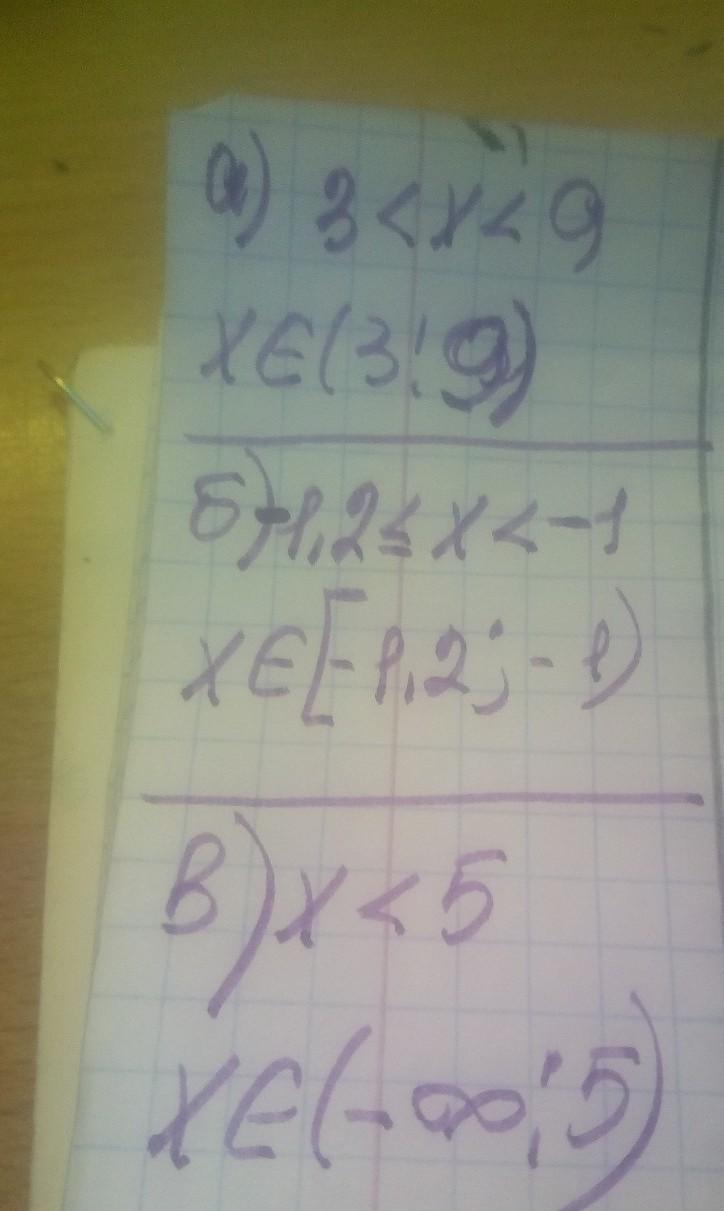 а) 3 < x < 9
x∈(3; 9)
б) -1,2 ≤ x < -1
x∈[-1,2; -1)
в) x < 5
x∈(-∞; 5)